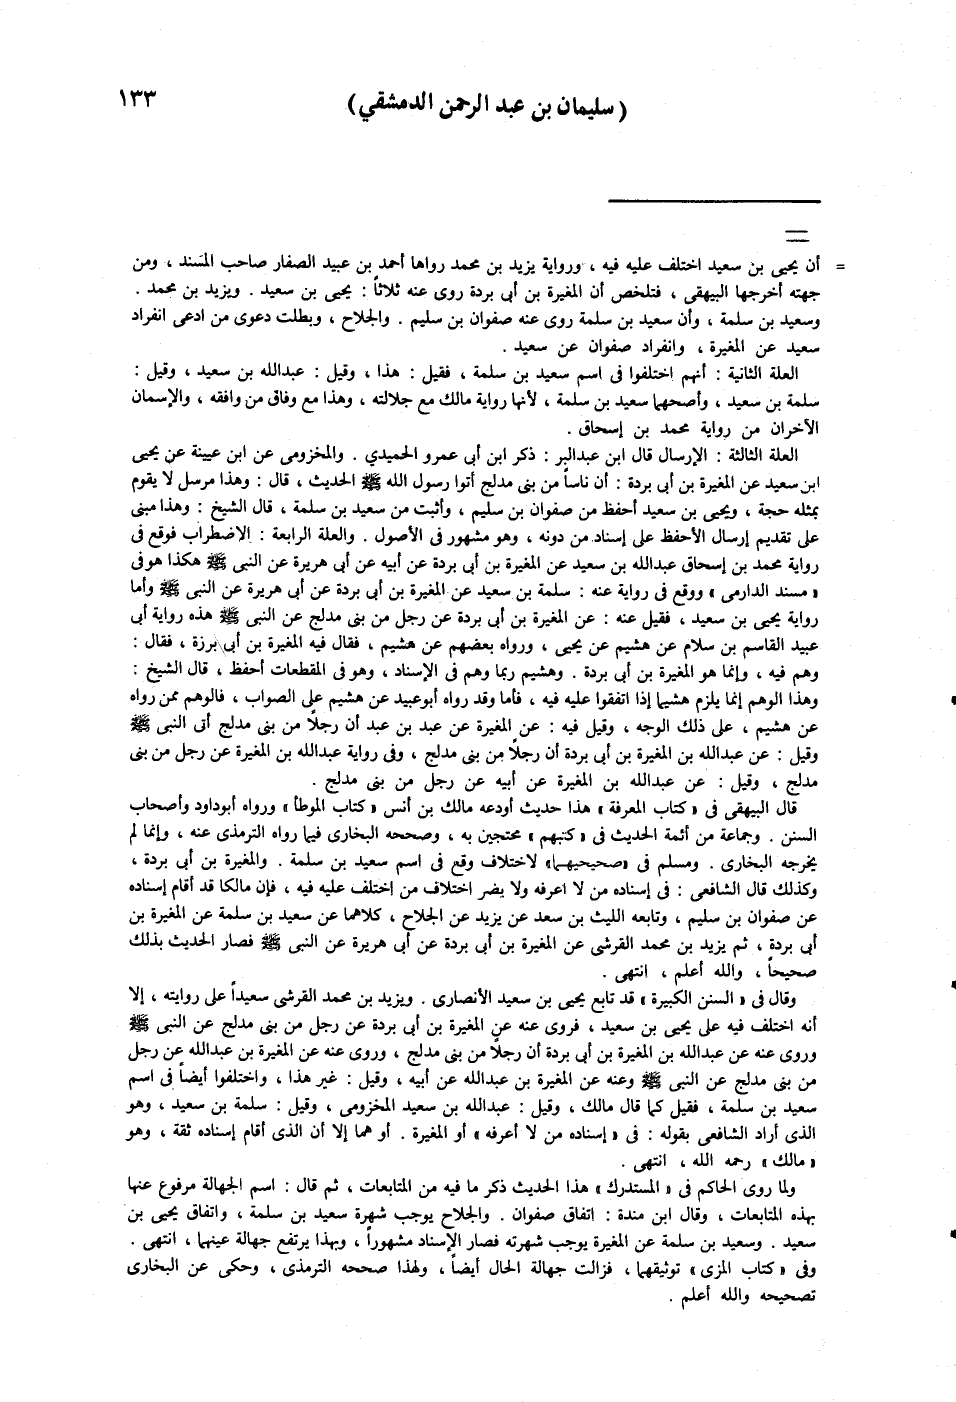 (سليمان بن عبد الرحمن الدمشقي)
١٣٣
= أن يحيى بن سعيد اختلف عليه فيه ، ورواية يزيد بن محمد رواها أحمد بن عبيد الصفار صاحب المسند ، ومن
جهته أخرجها البيهقى ، فتلخص أن المغيرة بن أبى بردة روى عنه ثلاثاً : يحيى بن سعيد . ويزيد بن محمد .
وسعيد بن سلمة ، وأن سعيد بن سلمة روى عنه صفوان بن سليم . والجلاح ، وبطلت دعوى من ادعى انفراد
سعيد عن المغيرة ، وانفراد صفوان عن سعيد .
العلة الثانية : أنهم اختلفوا فى اسم سعيد بن سلمة ، فقيل : هذا ، وقيل : عبدالله بن سعيد ، وقيل :
سلمة بن سعيد ، وأصحها سعيد بن سلمة ، لأنها رواية مالك مع جلالته ، وهذا مع وفاق من وافقه ، والإسمان
الأخران من رواية محمد بن إسحاق .
العلة الثالثة : الإرسال قال ابن عبدالبر : ذكر ابن أبى عمرو الحميدي . والمخزومى عن ابن عيينة عن يحيى
ابن سعيد عن المغيرة بن أبى بردة : أن ناساً من بنى مدلج أتوا رسول الله ﷺ الحديث ، قال : وهذا مرسل لا يقوم
بمثله حجة ، ويحيى بن سعيد أحفظ من صفوان بن سليم ، وأثبت من سعيد بن سلمة ، قال الشيخ : وهذا مبنى
على تقديم إرسال الأحفظ على إسناد من دونه ، وهو مشهور فى الأصول . والعلة الرابعة : الاضطراب فوقع فى
رواية محمد بن إسحاق عبدالله بن سعيد عن المغيرة بن أبى بردة عن أبيه عن أبى هريرة عن النبى ﷺ هكذا هو فى
« مسند الدارمى » ووقع فى رواية عنه : سلمة بن سعيد عن المغيرة بن أبى بردة عن أبى هريرة عن النبى ﷺ وأما
رواية يحيى بن سعيد ، فقيل عنه : عن المغيرة بن أبى بردة عن رجل من بنى مدلج عن النبى ﷺ هذه رواية أبى
عبيد القاسم بن سلام عن هشيم عن يحيى ، ورواه بعضهم عن هشيم ، فقال فيه المغيرة بن أبى برزة ، فقال :
وهم فيه ، وإنما هو المغيرة بن أبى بردة . وهشيم ربما وهم فى الإسناد ، وهو فى المقطعات أحفظ ، قال الشيخ :
وهذا الوهم إنما يلزم هشيما إذا اتفقوا عليه فيه ، فأما وقد رواه أبوعبيد عن هشيم على الصواب ، فالوهم ممن رواه
عن هشيم ، على ذلك الوجه ، وقيل فيه : عن المغيرة عن عبد بن عبد أن رجلاً من بنى مدلج أتى النبى ﷺ
وقيل : عن عبدالله بن المغيرة بن أبى بردة أن رجلاً من بنى مدلج ، وفى رواية عبدالله بن المغيرة عن رجل من بنى
مدلج ، وقيل : عن عبدالله بن المغيرة عن أبيه عن رجل من بنى مدلج .
قال البيهقى فى « كتاب المعرفة » هذا حديث أودعه مالك بن أنس « كتاب الموطأ » ورواه أبوداود وأصحاب
السنن . وجماعة من أئمة الحديث فى « كتبهم » محتجين به ، وصححه البخارى فيما رواه الترمذى عنه ، وإنما لم
يخرجه البخارى . ومسلم فى « صحيحيهما » لاختلاف وقع فى اسم سعيد بن سلمة . والمغيرة بن أبى بردة ،
وكذلك قال الشافعى : فى إسناده من لا اعرفه ولا يضر اختلاف من اختلف عليه فيه ، فإن مالكا قد أقام إسناده
عن صفوان بن سليم ، وتابعه الليث بن سعد عن يزيد عن الجلاح ، كلاهما عن سعيد بن سلمة عن المغيرة بن
أبى بردة ، ثم يزيد بن محمد القرشى عن المغيرة بن أبى بردة عن أبى هريرة عن النبى ﷺ فصار الحديث بذلك
صحيحاً ، والله أعلم ، انتهى .
وقال فى « السنن الكبيرة » قد تابع يحيى بن سعيد الأنصارى . ويزيد بن محمد القرشى سعيداً على روايته ، إلا
أنه اختلف فيه على يحيى بن سعيد ، فروى عنه عن المغيرة بن أبى بردة عن رجل من بنى مدلج عن النبى ﷺ
وروى عنه عن عبدالله بن المغيرة بن أبى بردة أن رجلاً من بنى مدلج ، وروى عنه عن المغيرة بن عبدالله عن رجل
من بنى مدلج عن النبى ﷺ وعنه عن المغيرة بن عبدالله عن أبيه ، وقيل : غير هذا ، واختلفوا أيضاً فى اسم
سعيد بن سلمة ، فقيل كما قال مالك ، وقيل : عبدالله بن سعيد المخزومى ، وقيل : سلمة بن سعيد ، وهو
الذى أراد الشافعى بقوله : فى « إسناده من لا أعرفه » أو المغيرة . أو هما إلا أن الذى أقام إسناده ثقة ، وهو
« مالك » رحمه الله ، انتهى .
ولما روى الحاكم فى « المستدرك » هذا الحديث ذكر ما فيه من المتابعات ، ثم قال : اسم الجهالة مرفوع عنها
بهذه المتابعات ، وقال ابن مندة : اتفاق صفوان . والجلاح يوجب شهرة سعيد بن سلمة ، واتفاق يحيى بن
سعيد . وسعيد بن سلمة عن المغيرة يوجب شهرته فصار الإسناد مشهوراً ، وبهذا يرتفع جهالة عينها ، انتهى .
وفى « كتاب المزى » توثيقهما ، فزالت جهالة الحال أيضاً ، ولهذا صححه الترمذى ، وحكى عن البخارى
تصحيحه والله أعلم .